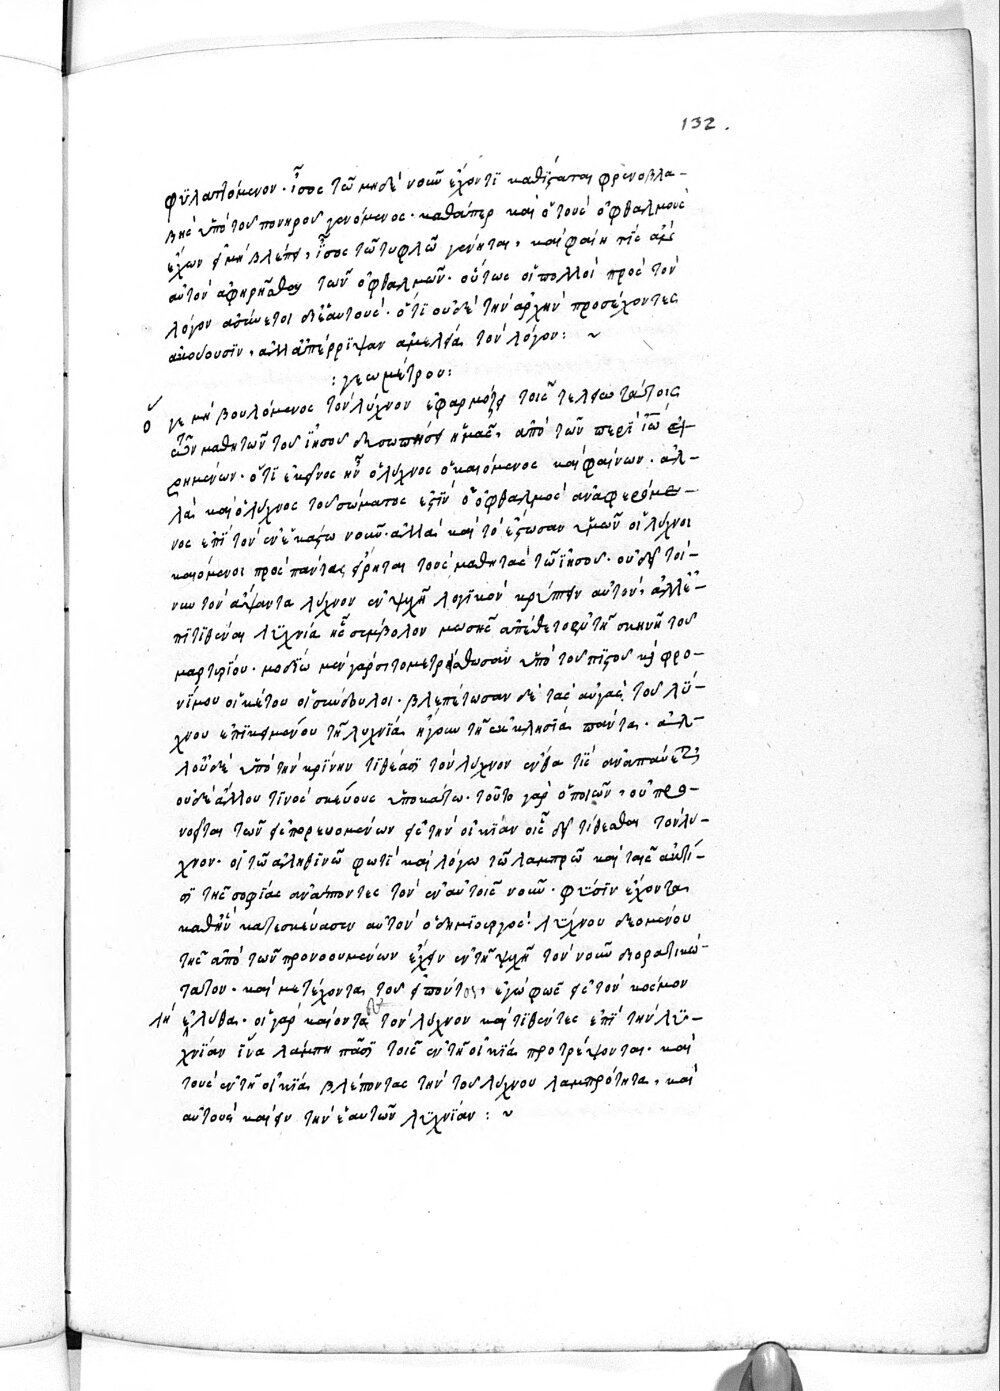 132.
φϋλαττόμενον· ἶσος τῶ μηδὲ νοῦν ἔχοντϊ καθΐσταται φρενοβλα-
βὴς ὑπὸ τοῦ πονηροῦ γενόμενος· καθάπερ καὶ ὁ τοὺς ὀφθαλμοὺς
ἔχων εἰ μὴ βλέπει, ἶσος τῶ τυφλῶ γένηται, καὶ φαίη τίς ἂν
αὐτὸν ἀφηρῆσθαι τῶν ὀφθαλμῶν· οὕτως οἱ πολλοὶ πρὸς τὸν
λόγον ἀσύνετοι δι' ἑαυτοὺς· ὅτϊ οὐδὲ τὴν ἀρχὴν προσέχοντες
ἀκούουσϊν, ἀλλ' ἀπέρρϊψαν ἀμελεία τὸν λόγον: ~
:γεωμέτρου:
ὅ γε μὴν βουλόμενος τὸν λύχνον ἐφαρμόσαι τοῖς τελειωτάτοις
τῶν μαθητῶν τοῦ ἰησοῦ δυσωπήσει ἡμᾶς, ἀπὸ τῶν περὶ ἰω εἰ-
ρημένων· ὅτϊ ἐκεῖνος ἦν ὁ λύχνος ὁ καιόμενος καὶ φαίνων· ἀλ-
λὰ καὶ ὁ λύχνος τοῦ σώματος ἐστϊν ὁ ὀφθαλμὸς ἀναφερόμε-
νος ἐπὶ τὸν ἐν ἑκάστω νοῦν· ἀλλὰ καὶ τὸ ἔστωσαν ὑμῶν οἱ λύχνοι
καιόμενοι πρὸς πάντας εἴρηται τοὺς μαθητὰς τοῦ ἰησοῦ· οὐ δεῖ τοί-
νυν τὸν ἅψαντα λύχνον ἐν ψυχῆ λογϊκὸν κρύπτειν αὐτὸν, ἀλλ' ἐ-
πιτϊθέναι λϋχνία ἧς σύμβολον μωσῆς ἀπέθετο ἐν τῆ σκηνῆ τοῦ
μαρτυρίου· μοδίω μὲν γὰρ σιτομετρείσθωσαν ὑπὸ τοῦ πϊστοῦ κ φρο-
νΐμου οἰκέτου οἱ σύνδουλοι· βλεπέτωσαν δὲ τὰς αὐγὰς τοῦ λΰ-
χνου ἐπϊκειμένου τῆ λυχνία ἤγουν τῆ ἐκκλησία πάντα· ἀλ-
λ' οὐδὲ ὑπὸ τὴν κλίνην τϊθέασϊ τὸν λύχνον ἔνθα τὶς ἀναπαύεται
οὐδὲ ἄλλου τϊνὸς σκεύους ὑποκάτω· τοῦτο γὰρ ὁ ποιῶν, οὐ προ-
νοεῖται τῶν εἰσπορευομένων εἰς τὴν οἰκίαν οἷς δεῖ τίθεσθαι τὸν λύ-
χνον· οἱ τῶ ἀληθϊνῶ φωτὶ καὶ λόγω τῶ λαμπρῶ καὶ ταῖς ἀκτῖ-
σϊ τῆς σοφίας ἀνάπτοντες τὸν ἐν αὐτοῖς νοῦν· φύσϊν ἔχοντα
καθ' ἣν κατεσκεύασεν αὐτὸν ὁ δημϊουργὸς· λΰχνου δεομένου
τῆς ἀπὸ τῶν προνοουμένων ἔχειν ἐν τῆ ψυχῆ τὸν νοῦν διορατικώ-
τατον· καὶ μετέχοντα τοῦ εἰπόντος, ἐγὼ φῶς εἰς τὸν κόσμον
λή ἐλυθα· οἱ γὰρ καίοντες τὸν λύχνον καὶ τϊθέντες ἐπὶ τὴν λϋ-
χνΐαν ἵνα λάμπη πᾶσϊ τοῖς ἐν τῆ οἰκία προτρέψονται· καὶ
τοὺς ἐν τῆ οἰκία βλέποντας τὴν τοῦ λύχνου λαμπρότητα, καὶ
αὐτοὺς καίειν τὴν ἑαυτῶν λϋχνΐαν: ~